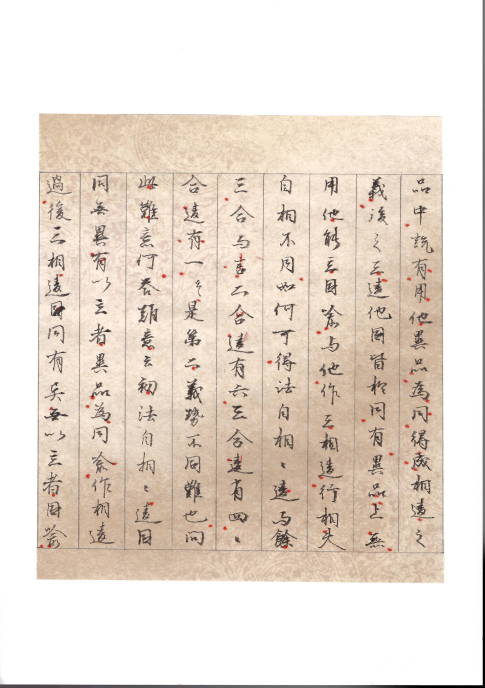 品中說有用他異品為同得成相違之
義後之三違他因皆於同有異品上無
用他能立因喻與他作三相違行相夫
自相不同如何可得法自相〻違與餘
三合与言二合違有六三合違有四〻
合違有一〻是第二義勢不同難也問
此難意何答難意云初法自相〻違因
同無異有以立者異品為同喻作相違
過後三相違因同有異無以立者因喻